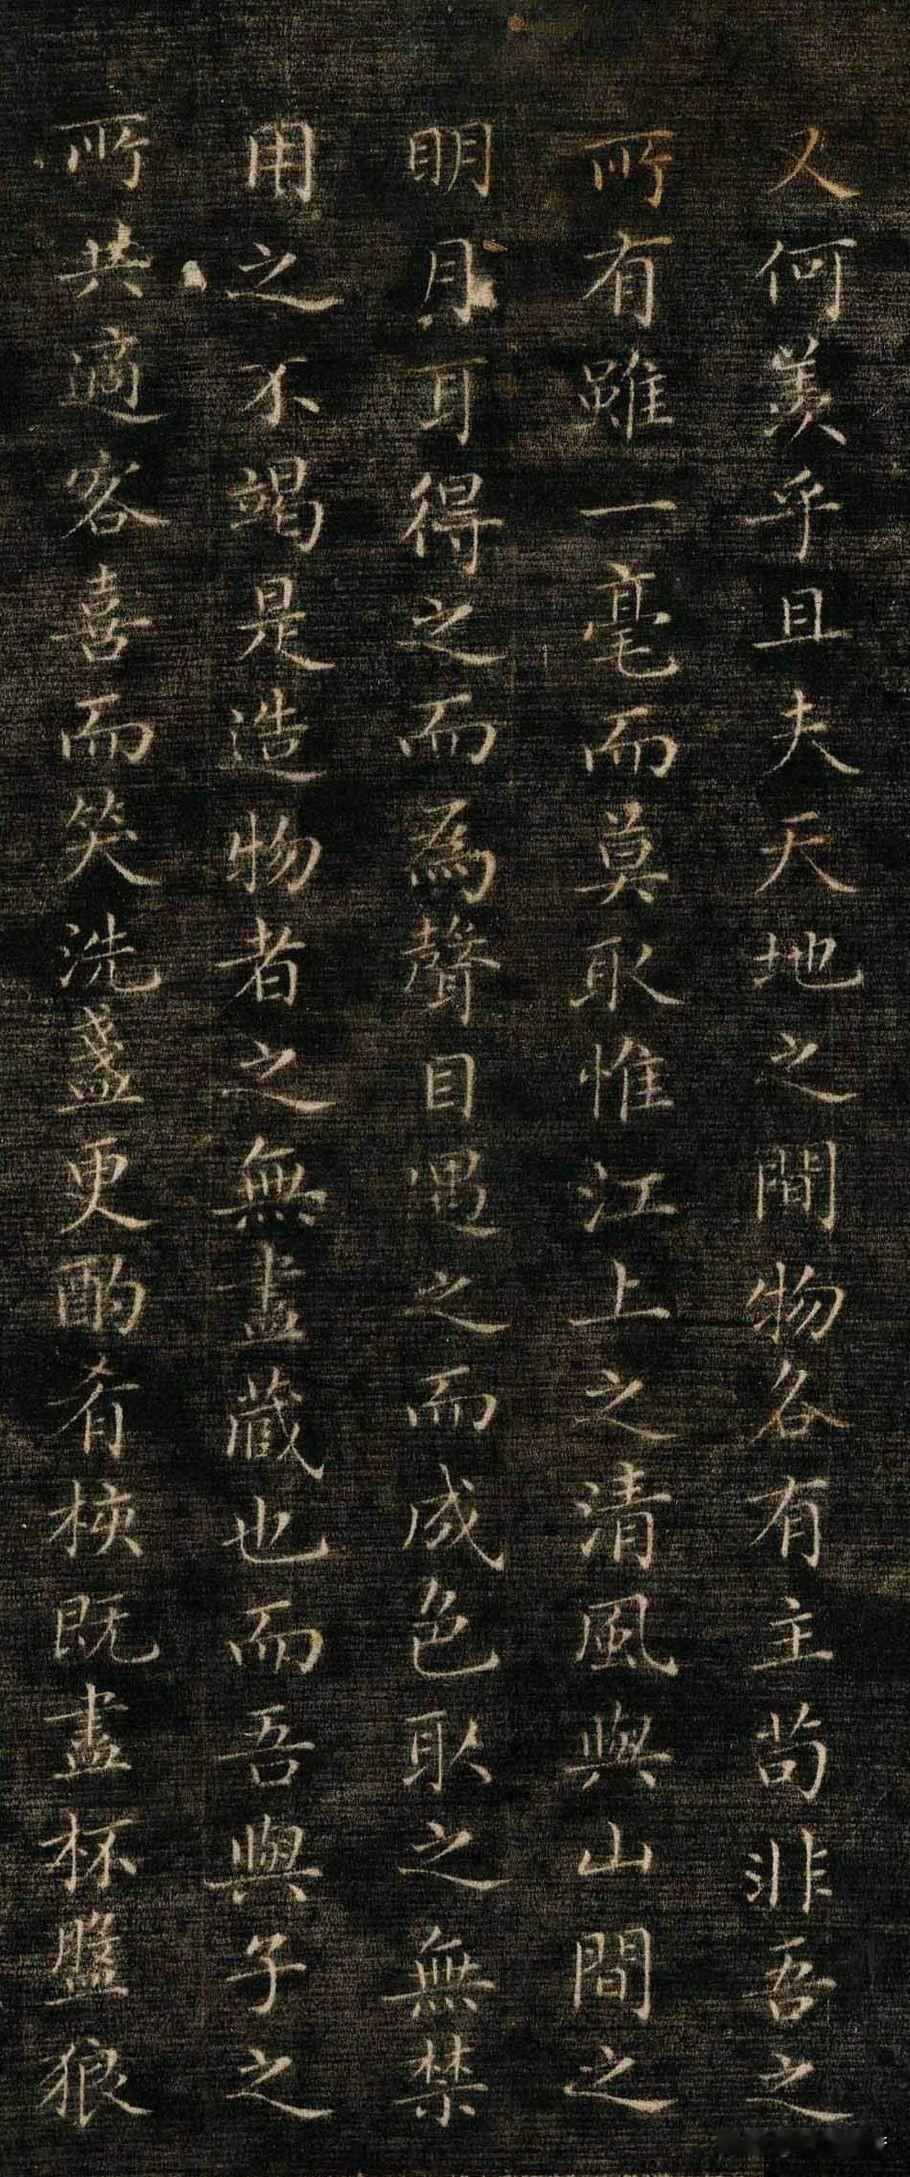 人何羨乎且夫天地之間物各有主苟非吾之
所有雖一毫而莫取惟江上之清風與山間之
明月耳得之而為聲目遇之而成色取之無禁
用之不竭是造物者之無盡藏也而吾與子之
所共適客喜而笑洗盞更酌肴核既盡杯盤狼